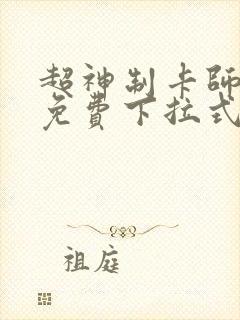 超神制卡師
免費下拉式
祖庭